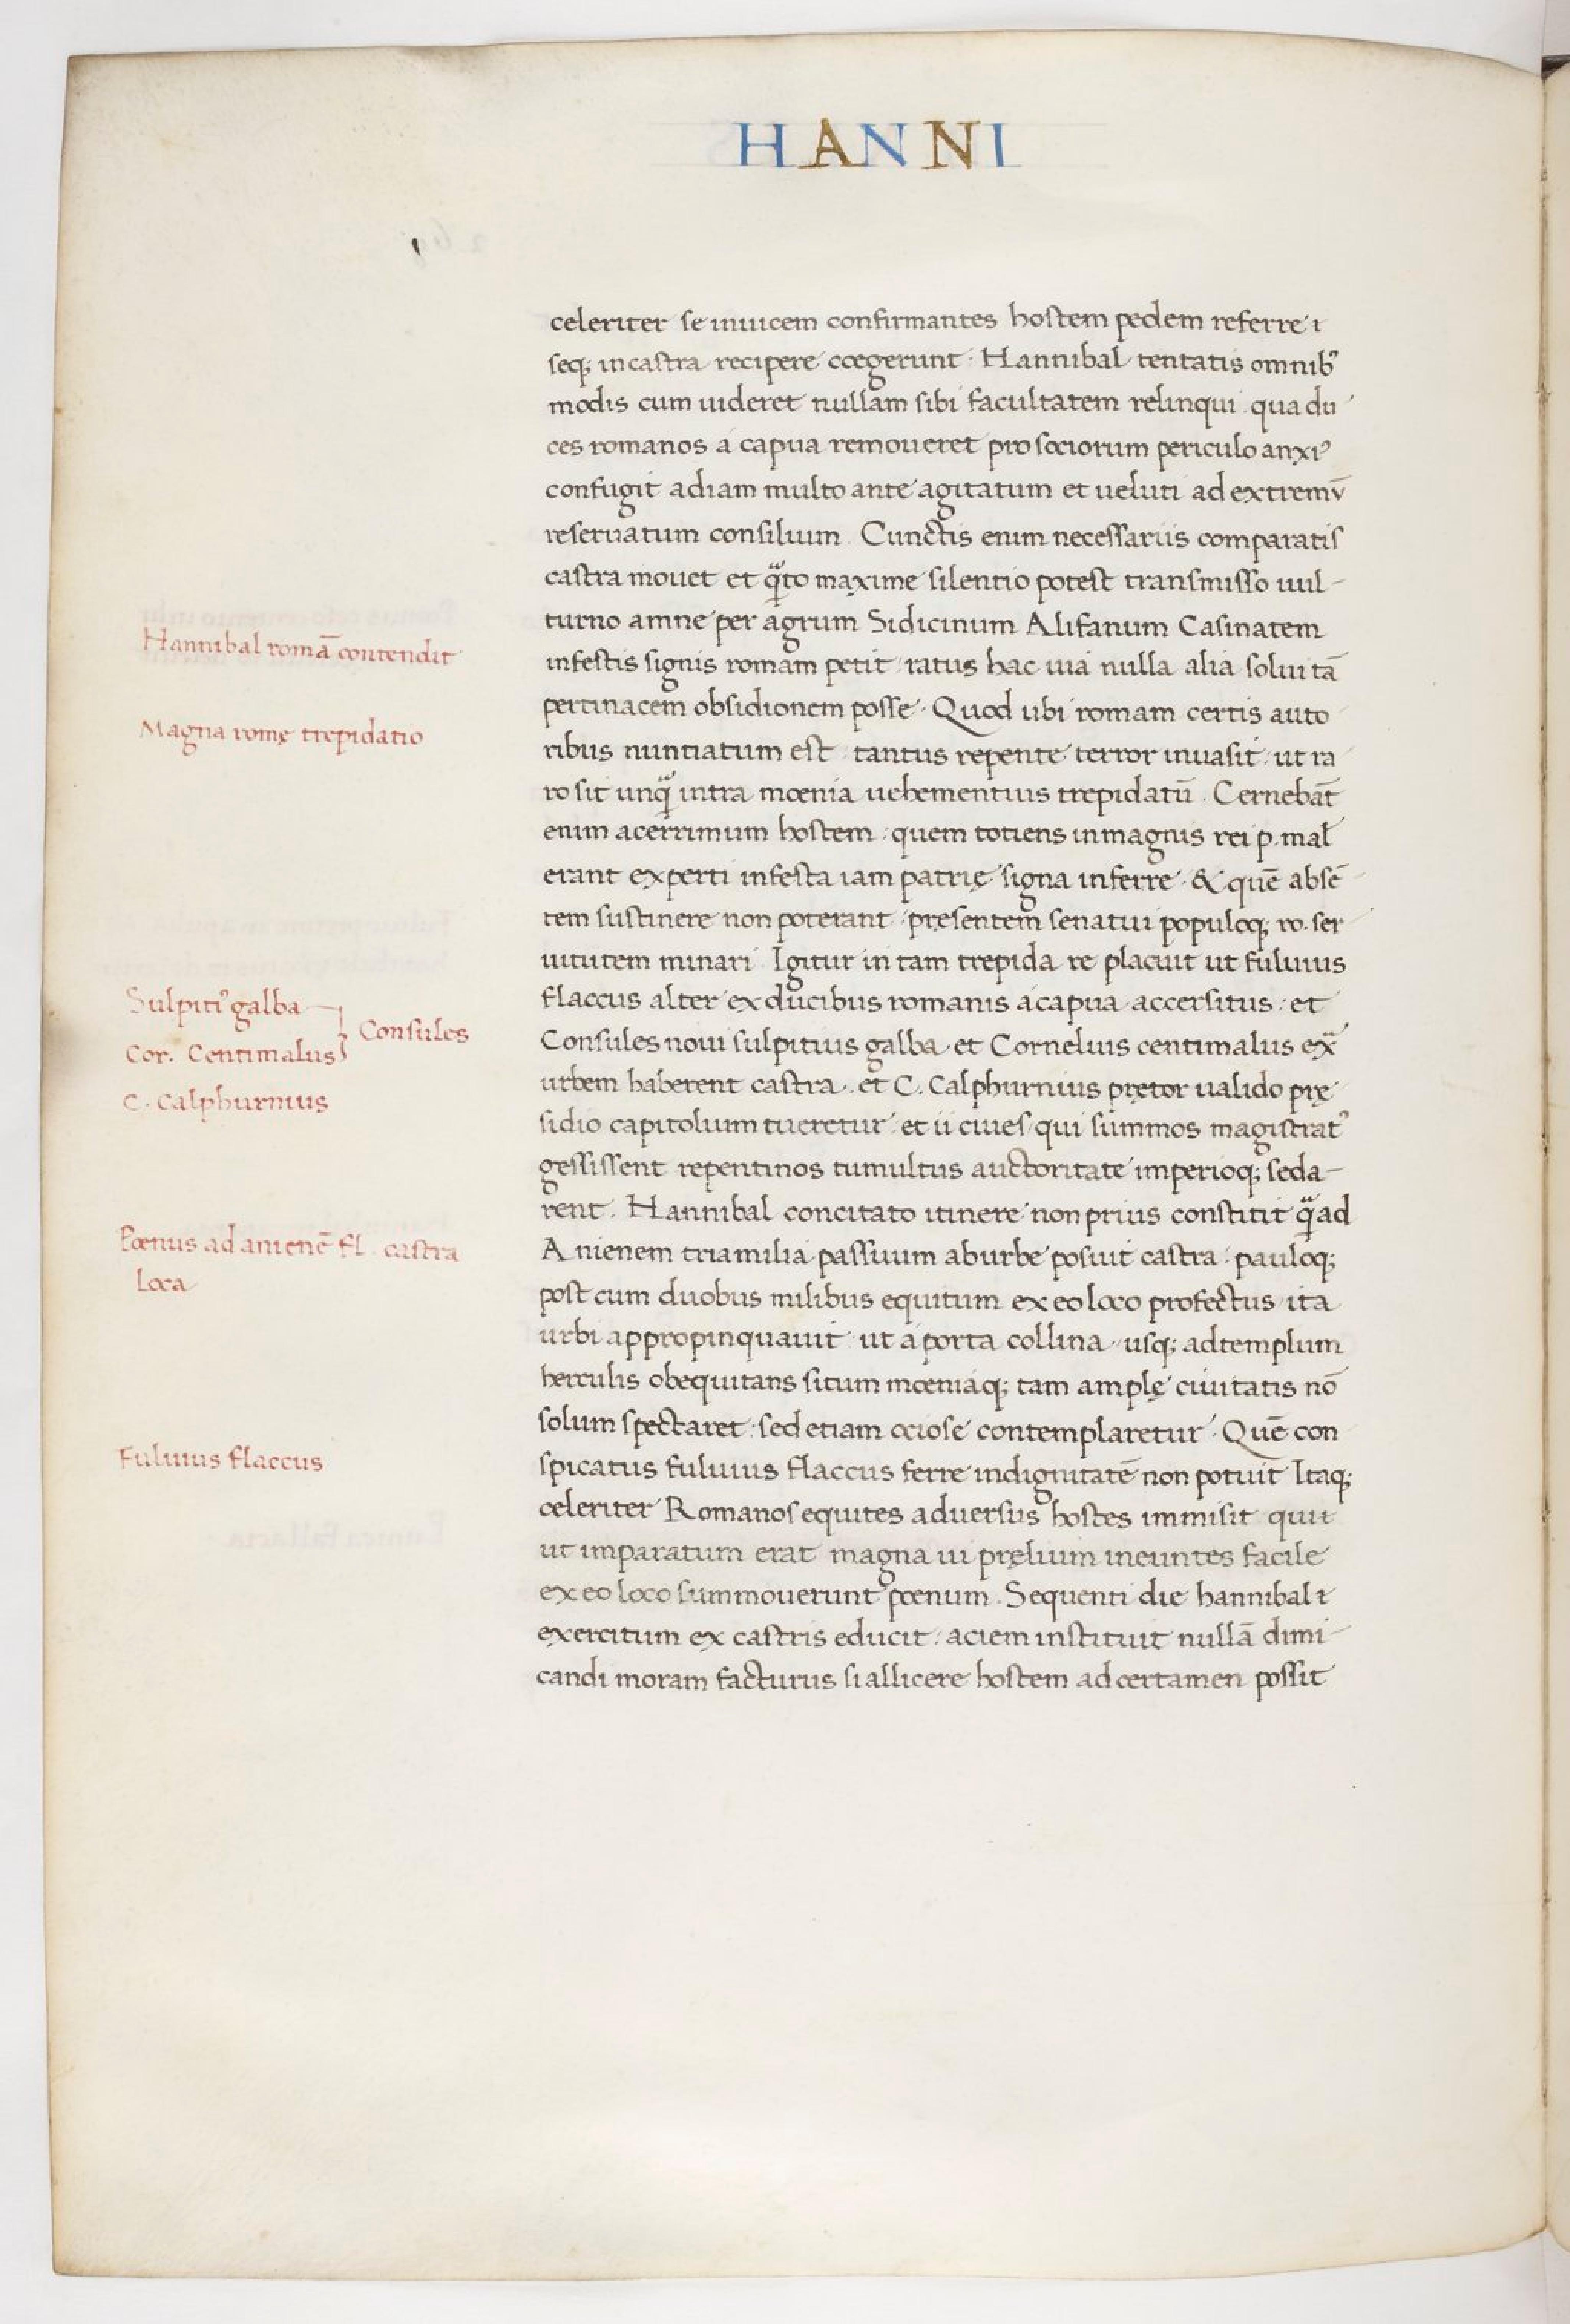 HANNI
celeriter se inuicem confirmantes hostem pedem referre
seq; in castra recipere coegerunt. Hannibal tentatis omnibꝰ
modis cum uideret nullam sibi facultatem relinqui. qua du
ces romanos a capua remoueret pro sociorum periculo anxiꝰ
confugit ad iam multo ante agitatum et ueluti ad extremū
reseruatum consilium. Cunctis enim necessariis comparatis
castra mouet et q̃to maxime silentio potest transmisso uul-
turno amne per agrum Sidicinum Alifanum Casinatem
Hannibal romā contendit
infestis signis romam petit: ratus hac uia nulla alia solui tā
pertinacem obsidionem posse. Quod ubi romam certis auto
Magna romę trepidatio
ribus nuntiatum est: tantus repente terror inuasit: ut ra
ro sit unq̃ intra moenia uehementius trepidatū. Cernebāt
enim acerrimum hostem: quem totiens in magnis rei p. mal
erant experti infesta iam patrię signa inferre. & quē absē
tem sustinere non poterant: pręsentem senatui populoq; ro. ser
uitutem minari. Igitur in tam trepida re placuit ut fuluius
flaccus alter ex ducibus romanis a capua accersitus: et
Sulpitiꝰ galba
Cor. Centimalus } Consules
C. Calphurnius
Consules noui sulpitius galba et Cornelius centimalus ex̃
urbem haberent castra. et C. Calphurnius prętor ualido prę
sidio capitolium tueretur: et ii ciues qui summos magistratꝰ
gessissent repentinos tumultus auctoritate imperioq; seda-
rent. Hannibal concitato itinere non prius constitit q̃ ad
Poenus ad anienē fl. castra
loca
Anienem tria milia passuum ab urbe posuit castra: pauloq;
post cum duobus milibus equitum ex eo loco profectus ita
urbi appropinquauit: ut a porta collina usq; ad templum
herculis obequitans situm moeniaq; tam amplę ciuitatis nō
solum spectaret: sed etiam ociose contemplaretur. Quē con
Fuluius flaccus
spicatus fuluius flaccus ferre indignitatē non potuit Itaq;
celeriter Romanos equites aduersus hostes immisit qui
ut imparatum erat magna ui pręlium ineuntes facile
ex eo loco summouerunt poenum. Sequenti die hannibal
exercitum ex castris educit: aciem instituit nullā dimi-
candi moram facturus si allicere hostem ad certamen possit